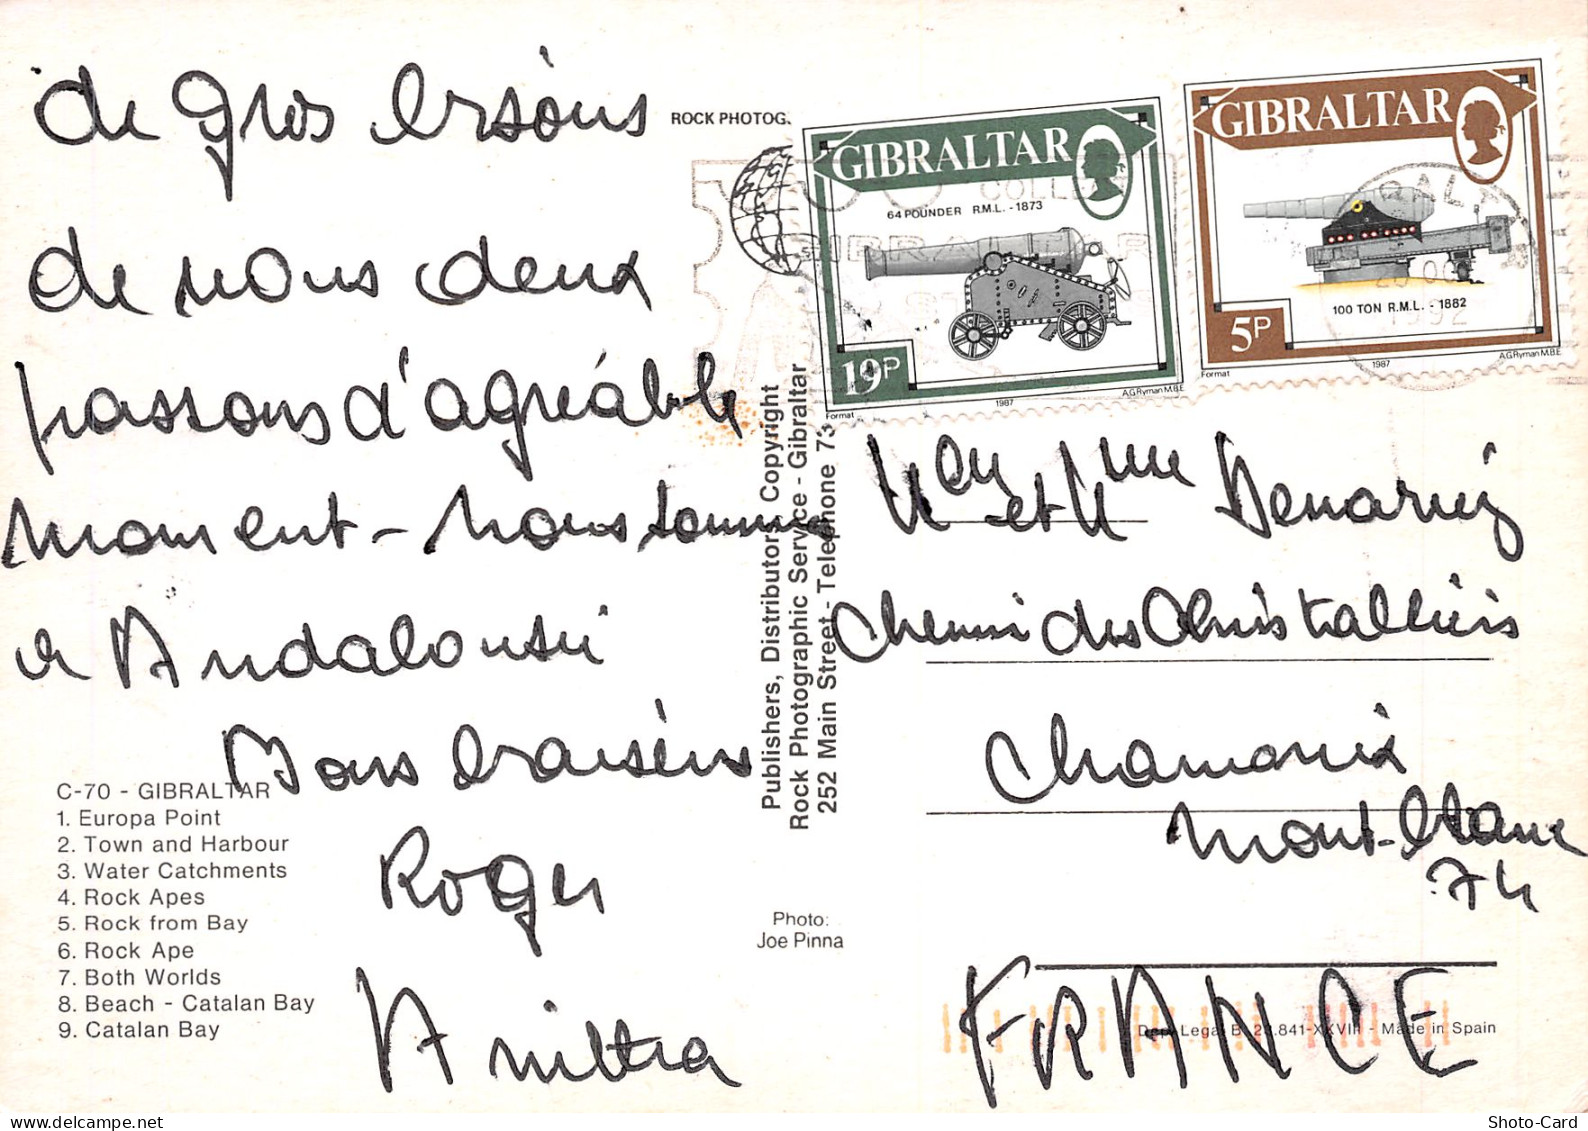 de gros bisous
de nous deux
passons d'agréable
moment - nous sommes
en Andalousie
Bons baisers
Roger
Anitta
C-70 - GIBRALTAR
1. Europa Point
2. Town and Harbour
3. Water Catchments
4. Rock Apes
5. Rock from Bay
6. Rock Ape
7. Both Worlds
8. Beach - Catalan Bay
9. Catalan Bay
ROCK PHOTOG
Publishers, Distributors Copyright
Rock Photographic Service - Gibraltar
252 Main Street - Telephone 73
Photo:
Joe Pinna
GIBRALTAR
64 POUNDER R.M.L. - 1873
19P
Format
1987
A.G.Ryman M.B.E
GIBRALTAR
100 TON R.M.L. - 1882
5P
Format
1987
A.G.Ryman M.B.E
COLLE
GIBRALTAR
1992
et Mme
Chemin des Christalliers
Chamonix
Mont-Blanc
74
FRANCE
Dep. Legal B. 23.841-XXVIII - Made in Spain
Shoto-Card
delcampe.net